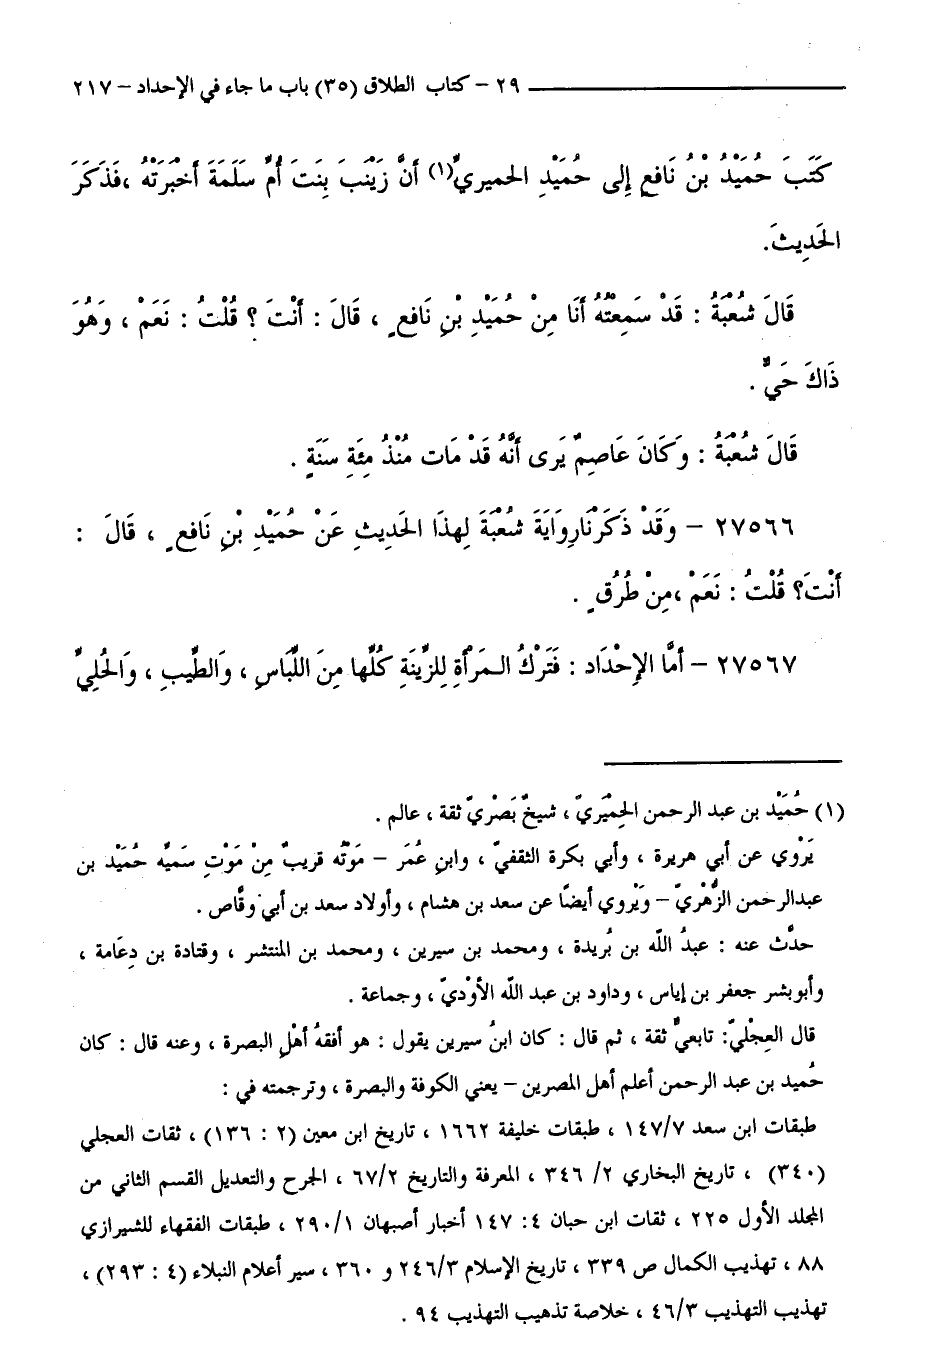 ٢٩ – كتاب الطلاق (٣٥) باب ما جاء في الإحداد – ٢١٧
كَتَبَ حُمَيْدُ بْنُ نَافِعٍ إِلى حُمَيْدٍ الحميريِّ(١) أَنَّ زَيْنَبَ بِنَتَ أُمِّ سَلَمَةَ أَخْبَرَتْهُ ،فَذَكَرَ
الحَدِيثَ.
قَالَ شُعْبَةُ : قَدْ سَمِعْتُهُ أَنَا مِنْ حُمَيْدِ بْنِ نَافعٍ ، قَالَ : أَنْتَ ؟ قُلْتُ : نَعَمْ ، وَهُوَ
ذَاكَ حَيٌّ .
قَالَ شُعْبَةُ : وَكَانَ عَاصِمٌ يَرى أَنَّهُ قَدْ مَات مُنْذُ مِئَةِ سَنَةٍ .
٢٧٥٦٦ – وَقَدْ ذَكَرْنَارِوَايَةَ شُعْبَةَ لِهذَا الحَدِيثِ عَنْ حُمَيْدِ بْنِ نَافعٍ ، قَالَ :
أَنْتَ؟ قُلْتُ : نَعَمْ ،مِنْ طُرُقٍ .
٢٧٥٦٧ – أَمَّا الإِحْدَاد : فَتَرْكُ المَرْأَةِ لِلزِّينَةِ كُلِّها مِنَ اللِّبَاسِ ، وَالطِّيبِ ، وَالحُلِيِّ
(١) حُمَيْد بن عبد الرحمن الحِمْيَريّ ، شيخٌ بَصْريّ ثقة ، عالم .
يَرْوي عن أبي هريرة ، وأبي بكرة الثقفيّ ، وابنِ عُمَر – مَوْتُه قريبٌ مِنْ مَوْتِ سَمِيِّه حُمَيْد بن
عبدالرحمن الزُّهْريّ – ويَرْوي أيضًا عن سعد بن هشام ، وأولاد سعد بن أبي وقَّاص .
حدَّث عنه : عبدُ اللّه بن بُريدة ، ومحمد بن سيرين ، ومحمد بن المنتشر ، وقتادة بن دِعَامة ،
وأبوبشر جعفر بن إياس ، وداود بن عبد اللّه الأوْديّ ، وجماعة .
قال العِجْليّ: تابعيٌّ ثقة ، ثم قال : كان ابنُ سيرين يقول : هو أفقهُ أهْلِ البصرة ، وعنه قال : كان
حُميد بن عبد الرحمن أعلم أهل المصرين – يعني الكوفة والبصرة ، وترجمته في :
طبقات ابن سعد ١٤٧/٧ ، طبقات خليفة ١٦٦٢ ، تاريخ ابن معين (٢ : ١٣٦) ، ثقات العجلي
(٣٤٠) ، تاريخ البخاري ٢/ ٣٤٦ ، المعرفة والتاريخ ٦٧/٢ ، الجرح والتعديل القسم الثاني من
المجلد الأول ٢٢٥ ، ثقات ابن حبان ٤: ١٤٧ أخبار أصبهان ٢٩٠/١ ، طبقات الفقهاء للشيرازي
٨٨ ، تهذيب الكمال ص ٣٣٩ ، تاريخ الإسلام ٢٤٦/٣ و ٣٦٠ ، سير أعلام النبلاء (٤ : ٢٩٣) ،
تهذيب التهذيب ٤٦/٣ ، خلاصة تذهيب التهذيب ٩٤ .